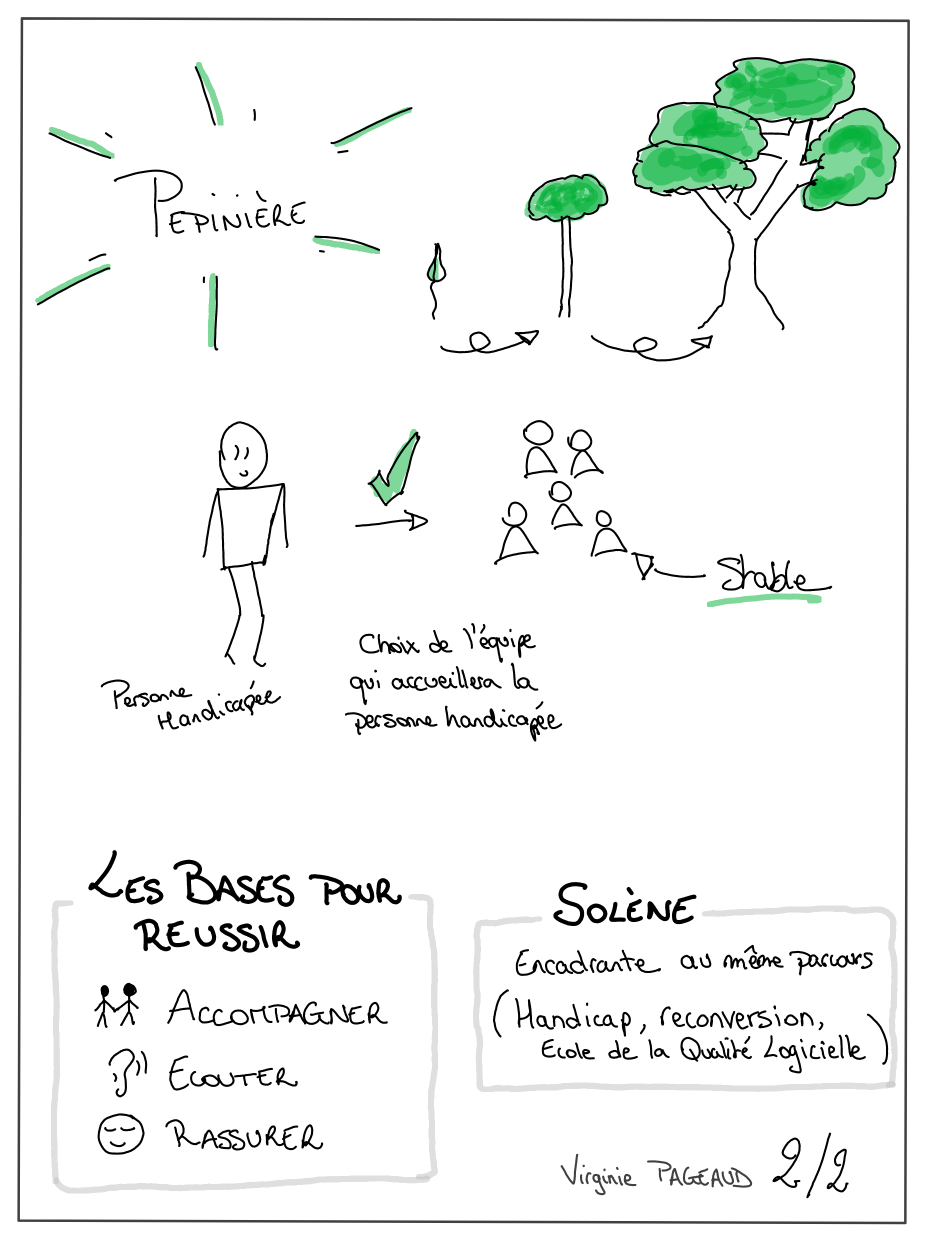 PEPINIÈRE
Stable
Personne
Handicapée
Choix de l'équipe
qui accueillera la
personne handicapée
LES BASES POUR
REUSSIR
ACCOMPAGNER
ECOUTER
RASSURER
SOLÈNE
Encadrante au même parcours
(Handicap, reconversion,
Ecole de la Qualité Logicielle)
Virginie PAGEAUD 2/2